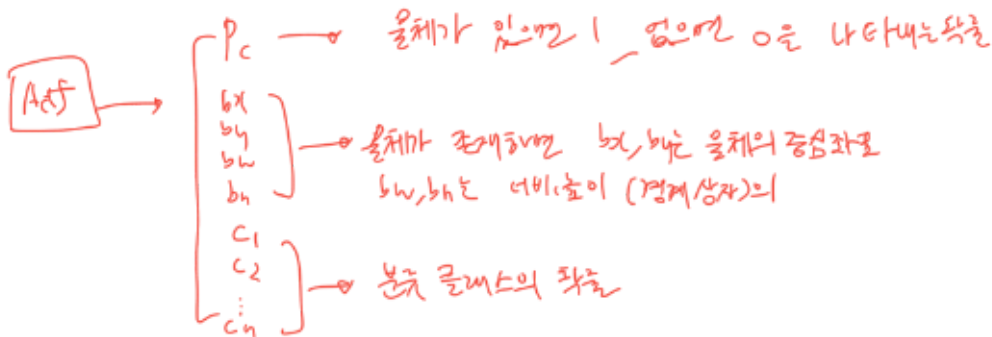 Pc → 물체가 있으면 1, 없으면 0을 나타내는 확률
bx
by
bw
bh
→ 물체가 존재하면 bx, by는 물체의 중심좌표
bw, bh는 너비, 높이 (경계상자)의
C1
C2
⋮
Cn
→ 분류 클래스의 확률